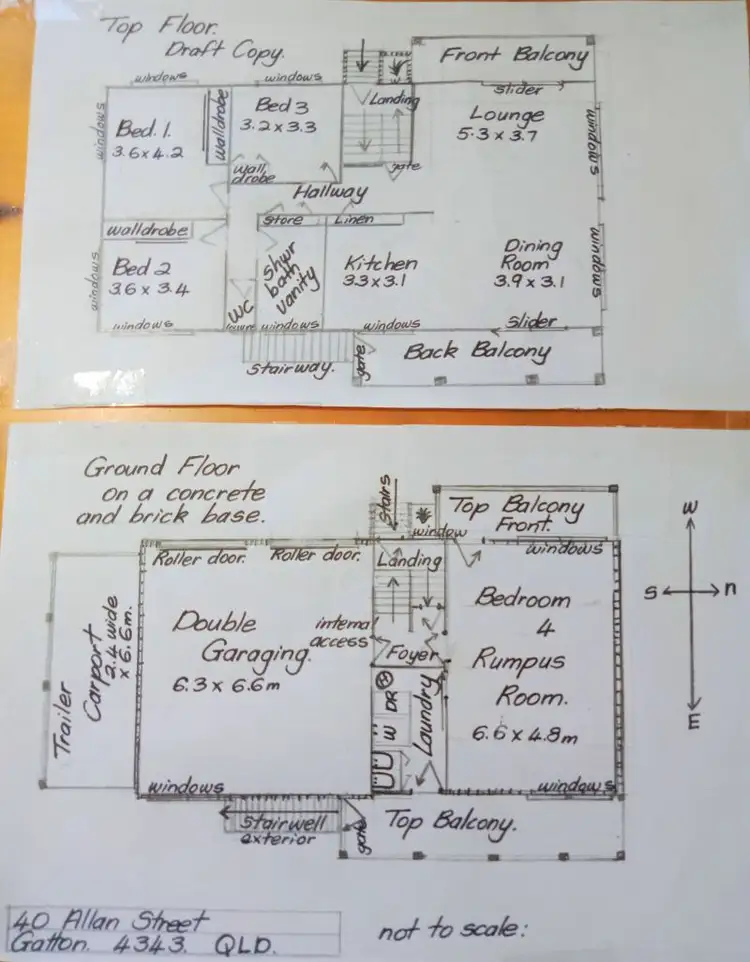 Top Floor.
Draft Copy.
Front Balcony
windows
windows
slider
Landing
windows
Bed. 1.
3.6 x 4.2
walldrobe
Bed 3
3.2 x 3.3
Lounge
5.3 x 3.7
windows
wall
drobe
gate
Hallway
store
Linen
walldrobe
windows
Bed 2
3.6 x 3.4
WC
Shwr
bath
vanity
Kitchen
3.3 x 3.1
Dining
Room
3.9 x 3.1
windows
windows
windows
windows
slider
Stairway.
gate
Back Balcony
Ground Floor
on a concrete
and brick base.
Stairs
Top Balcony
Front.
window
windows
Roller door.
Roller door.
Landing
W
S
n
E
Trailer
Carport
2.4 wide
x 6.6m.
Double
Garaging.
6.3 x 6.6m
internal
access
Foyer
Bedroom
4
Rumpus
Room.
6.6 x 4.8m
DR
W
Laundry
windows
windows
Stairwell
exterior
gate
Top Balcony.
40 Allan Street
Gatton. 4343. QLD.
not to scale: